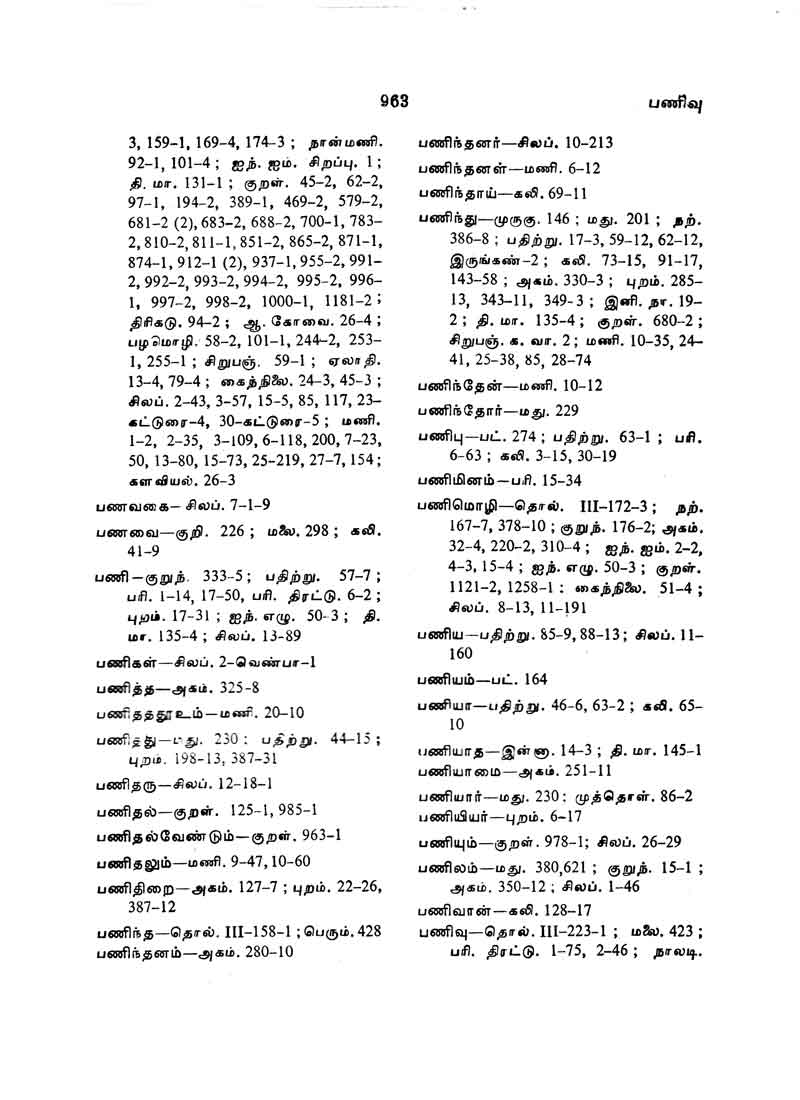 963
பணிவு
3, 159–1, 169–4, 174–3 ; நான்மணி.
92–1, 101–4 ; ஐந். ஐம். சிறப்பு. 1 ;
தி. மா. 131–1 ; குறள். 45–2, 62–2,
97–1, 194–2, 389–1, 469–2, 579–2,
681–2 (2), 683–2, 688–2, 700–1, 783–
2, 810–2, 811–1, 851–2, 865–2, 871–1,
874–1, 912–1 (2), 937–1, 955–2, 991–
2, 992–2, 993–2, 994–2, 995–2, 996–
1, 997–2, 998–2, 1000–1, 1181–2 ;
திரிகடு. 94–2 ; ஆ. கோவை. 26–4 ;
பழமொழி. 58–2, 101–1, 244–2, 253–
1, 255–1 ; சிறுபஞ். 59–1 ; ஏலாதி.
13–4, 79–4 ; கைந்நிலை. 24–3, 45–3 ;
சிலப். 2–43, 3–57, 15–5, 85, 117, 23–
கட்டுரை–4, 30–கட்டுரை–5 ; மணி.
1–2, 2–35, 3–109, 6–118, 200, 7–23,
50, 13–80, 15–73, 25–219, 27–7, 154 ;
களவியல். 26–3
பணவகை – சிலப். 7–1–9
பணவை—குறி. 226 ; மலை. 298 ; கலி.
41–9
பணி—குறுந். 333–5 ; பதிற்று. 57–7 ;
பரி. 1–14, 17–50, பரி. திரட்டு. 6–2 ;
புறம். 17–31 ; ஐந். எழு. 50–3 ; தி.
மா. 135–4 ; சிலப். 13–89
பணிகள்—சிலப். 2–வெண்பா–1
பணித்த—அகம். 325–8
பணிததூஉம்—மணி. 20–10
பணித்து—மது. 230 : பதிற்று. 44–15 ;
புறம். 198–13, 387–31
பணிதரு—சிலப். 12–18–1
பணிதல்—குறள். 125–1, 985–1
பணிதல்வேண்டும்—குறள். 963–1
பணிதலும்—மணி. 9–47, 10–60
பணிதிறை—அகம். 127–7 ; புறம். 22–26,
387–12
பணிந்த—தொல். III–158–1 ; பெரும். 428
பணிந்தனம்—அகம். 280–10
பணிந்தனர்—சிலப். 10–213
பணிந்தனள்—மணி. 6–12
பணிந்தாய்—கலி. 69–11
பணிந்து—முருகு. 146 ; மது. 201 ; நற்.
386–8 ; பதிற்று. 17–3, 59–12, 62–12,
இருங்கண்–2 ; கலி. 73–15, 91–17,
143–58 ; அகம். 330–3 ; புறம். 285–
13, 343–11, 349–3 ; இனி. நா. 19–
2 ; தி. மா. 135–4 ; குறள். 680–2 ;
சிறுபஞ். க. வா. 2 ; மணி. 10–35, 24–
41, 25–38, 85, 28–74
பணிந்தேன்—மணி. 10–12
பணிந்தோர்—மது. 229
பணிபு—பட். 274 ; பதிற்று. 63–1 ; பரி.
6–63 ; கலி. 3–15, 30–19
பணிமினம்—பரி. 15–34
பணிமொழி—தொல். III–172–3 ; நற்.
167–7, 378–10 ; குறுந். 176–2; அகம்.
32–4, 220–2, 310–4 ; ஐந். ஐம். 2–2,
4–3, 15–4 ; ஐந். எழு. 50–3 ; குறள்.
1121–2, 1258–1 : கைந்நிலை. 51–4 ;
சிலப். 8–13, 11–191
பணிய—பதிற்று. 85–9, 88–13 ; சிலப். 11–
160
பணியம்—பட். 164
பணியா—பதிற்று. 46–6, 63–2 ; கலி. 65–
10
பணியாத—இன்னா. 14–3 ; தி. மா. 145–1
பணியாமை—அகம். 251–11
பணியார்—மது. 230 : முத்தொள். 86–2
பணியியர்—புறம். 6–17
பணியும்—குறள். 978–1; சிலப். 26–29
பணிலம்—மது. 380,621 ; குறுந். 15–1 ;
அகம். 350–12 ; சிலப். 1–46
பணிவான்—கலி. 128–17
பணிவு—தொல். III–223–1 ; மலை. 423 ;
பரி. திரட்டு. 1–75, 2–46 ; நாலடி.